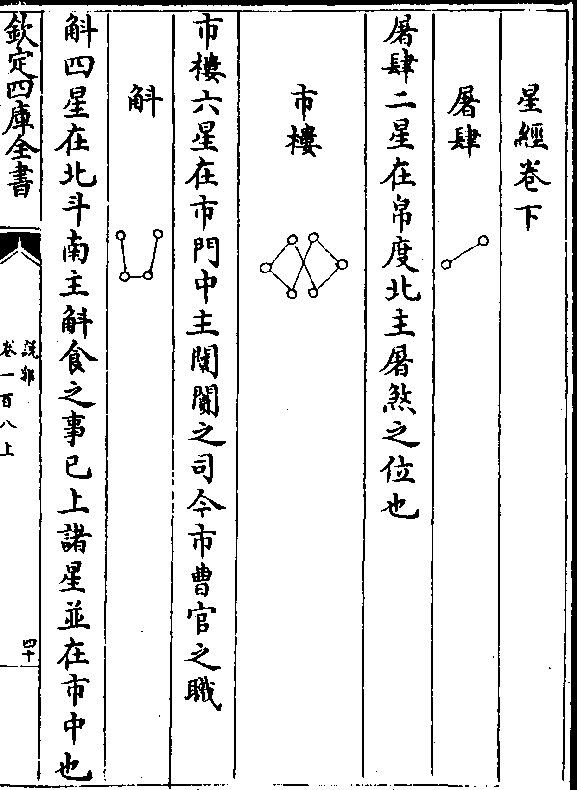 星經卷下
屠肆
屠肆二星在帛度北主屠煞之位也
市樓
市樓六星在市門中主闤闠之司今市曹官之職
斛
斛四星在北斗南主斛食之事已上諸星並在市中也
欽定四庫全書
說郛
卷一百八上
四十